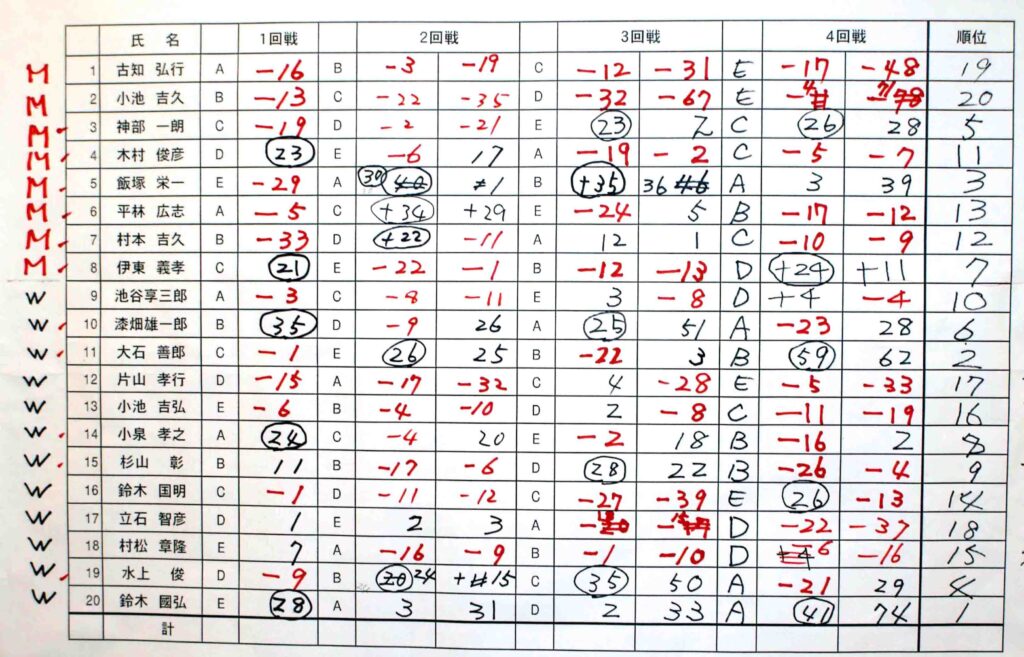 氏 名 1回戦 2回戦 3回戦 4回戦 順位
M 1 古知 弘行 A -16 B -3 -19 C -12 -31 E -17 -48 19
M 2 小池 吉久 B -13 C -22 -35 D -32 -67 E -4 -71 20
M 3 神部 一朗 C -19 D -2 -21 E 23 2 C 26 28 5
M 4 木村 俊彦 D 23 E -6 17 A -19 -2 C -5 -7 11
M 5 飯塚 栄一 E -29 A 30 1 B +35 36 A 3 39 3
M 6 平林 広志 A -5 C +34 +29 E -24 5 B -17 -12 13
M 7 村本 吉久 B -33 D +22 -11 A 12 1 C -10 -9 12
M 8 伊東 義孝 C 21 E -22 -1 B -12 -13 D +24 +11 7
W 9 池谷享三郎 A -3 C -8 -11 E 3 -8 D +4 -4 10
W 10 漆畑雄一郎 B 35 D -9 26 A 25 51 A -23 28 6
W 11 大石 善郎 C -1 E 26 25 B -22 3 B 59 62 2
W 12 片山 孝行 D -15 A -17 -32 C 4 -28 E -5 -33 17
W 13 小池 吉弘 E -6 B -4 -10 D 2 -8 C -11 -19 16
W 14 小泉 孝之 A 24 C -4 20 E -2 18 B -16 2 8
W 15 杉山 彰 B 11 B -17 -6 D 28 22 B -26 -4 9
W 16 鈴木 国明 C -1 D -11 -12 C -27 -39 E 26 -13 14
W 17 立石 智彦 D 1 E 2 3 A D -22 -37 18
W 18 村松 章隆 E 7 A -16 -9 B -1 -10 D -6 -16 15
W 19 水上 俊 D -9 B 24 +15 C 35 50 A -21 29 4
W 20 鈴木 國弘 E 28 A 3 31 D 2 33 A 41 74 1
計